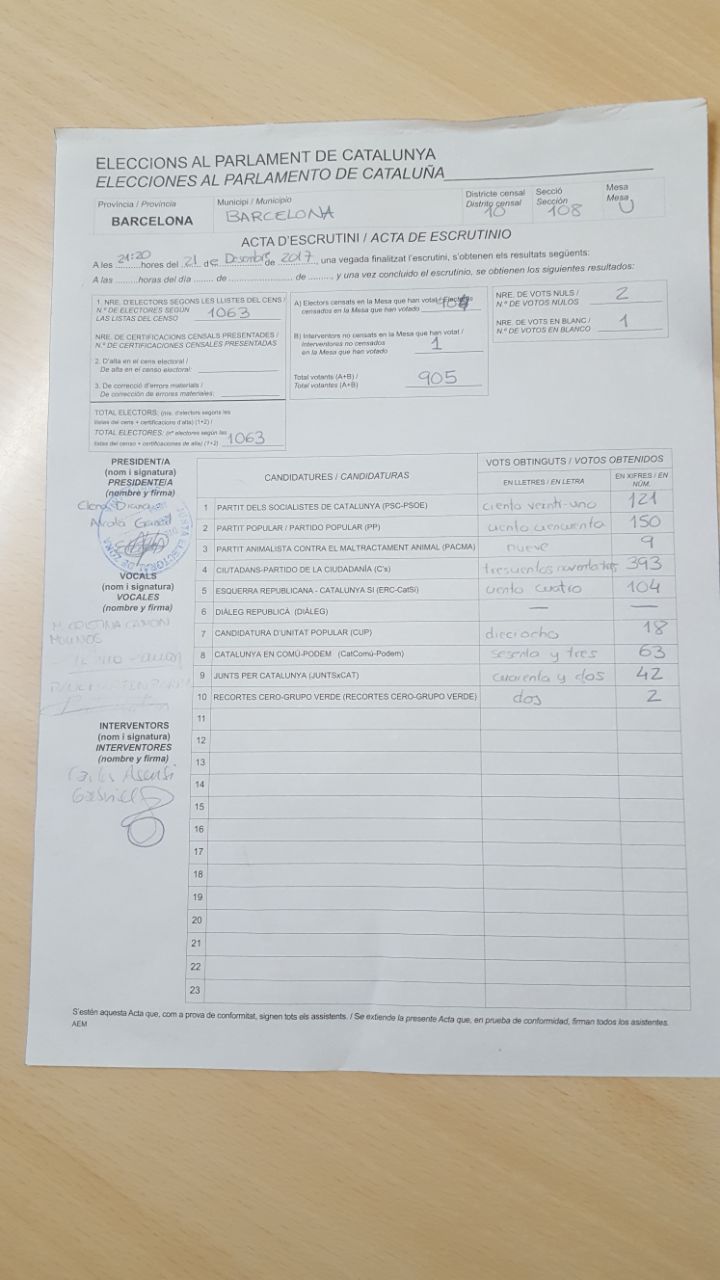 ELECCIONS AL PARLAMENT DE CATALUNYA
ELECCIONES AL PARLAMENTO DE CATALUÑA
Província / Provincia
BARCELONA
Municipi / Municipio
BARCELONA
Districte censal
Distrito censal
10
Secció
Sección
108
Mesa
Mesa
U
ACTA D'ESCRUTINI / ACTA DE ESCRUTINIO
A les 21:20 hores del 21 de Desembre de 2017, una vegada finalitzat l'escrutini, s'obtenen els resultats següents:
A las ......... horas del día ....... de .................... de ........, y una vez concluido el escrutinio, se obtienen los siguientes resultados:
1. NRE. D'ELECTORS SEGONS LES LLISTES DEL CENS /
N.º DE ELECTORES SEGÚN
LAS LISTAS DEL CENSO 1063
NRE. DE CERTIFICACIONS CENSALS PRESENTADES /
N.º DE CERTIFICACIONES CENSALES PRESENTADAS
2. D'alta en el cens electoral /
De alta en el censo electoral:
3. De correcció d'errors materials /
De corrección de errores materiales:
TOTAL ELECTORS: (nre. d'electors segons les
llistes del cens + certificacions d'alta) (1+2) /
TOTAL ELECTORES: (nº electores según las
listas del censo + certificaciones de alta) (1+2) 1063
A) Electors censats en la Mesa que han votat / Electores
censados en la Mesa que han votado 904
B) Interventors no censats en la Mesa que han votat /
Interventores no censados
en la Mesa que han votado 1
Total votants (A+B) /
Total votantes (A+B) 905
NRE. DE VOTS NULS /
N.º DE VOTOS NULOS 2
NRE. DE VOTS EN BLANC /
N.º DE VOTOS EN BLANCO 1
PRESIDENT/A
(nom i signatura)
PRESIDENTE/A
(nombre y firma)
VOCALS
(nom i signatura)
VOCALES
(nombre y firma)
M. CRISTINA
INTERVENTORS
(nom i signatura)
INTERVENTORES
(nombre y firma)
Carlos Asensi
Gabriel
CANDIDATURES / CANDIDATURAS
VOTS OBTINGUTS / VOTOS OBTENIDOS
EN LLETRES / EN LETRA
EN XIFRES / EN NÚM.
1 PARTIT DELS SOCIALISTES DE CATALUNYA (PSC-PSOE) ciento veinti-uno 121
2 PARTIT POPULAR / PARTIDO POPULAR (PP) ciento cincuenta 150
3 PARTIT ANIMALISTA CONTRA EL MALTRACTAMENT ANIMAL (PACMA) nueve 9
4 CIUTADANS-PARTIDO DE LA CIUDADANÍA (C's) trescientos noventa tres 393
5 ESQUERRA REPUBLICANA - CATALUNYA SI (ERC-CatSí) ciento cuatro 104
6 DIÀLEG REPUBLICÀ (DIÀLEG) — —
7 CANDIDATURA D'UNITAT POPULAR (CUP) dieciocho 18
8 CATALUNYA EN COMÚ-PODEM (CatComú-Podem) sesenta y tres 63
9 JUNTS PER CATALUNYA (JUNTSxCAT) cuarenta y dos 42
10 RECORTES CERO-GRUPO VERDE (RECORTES CERO-GRUPO VERDE) dos 2
11
12
13
14
15
16
17
18
19
20
21
22
23
S'estén aquesta Acta que, com a prova de conformitat, signen tots els assistents. / Se extiende la presente Acta que, en prueba de conformidad, firman todos los asistentes.
AEM